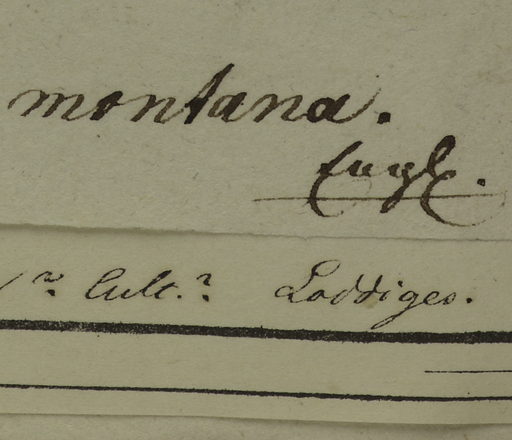 montana.
Engl.
Cult.? Loddiges.